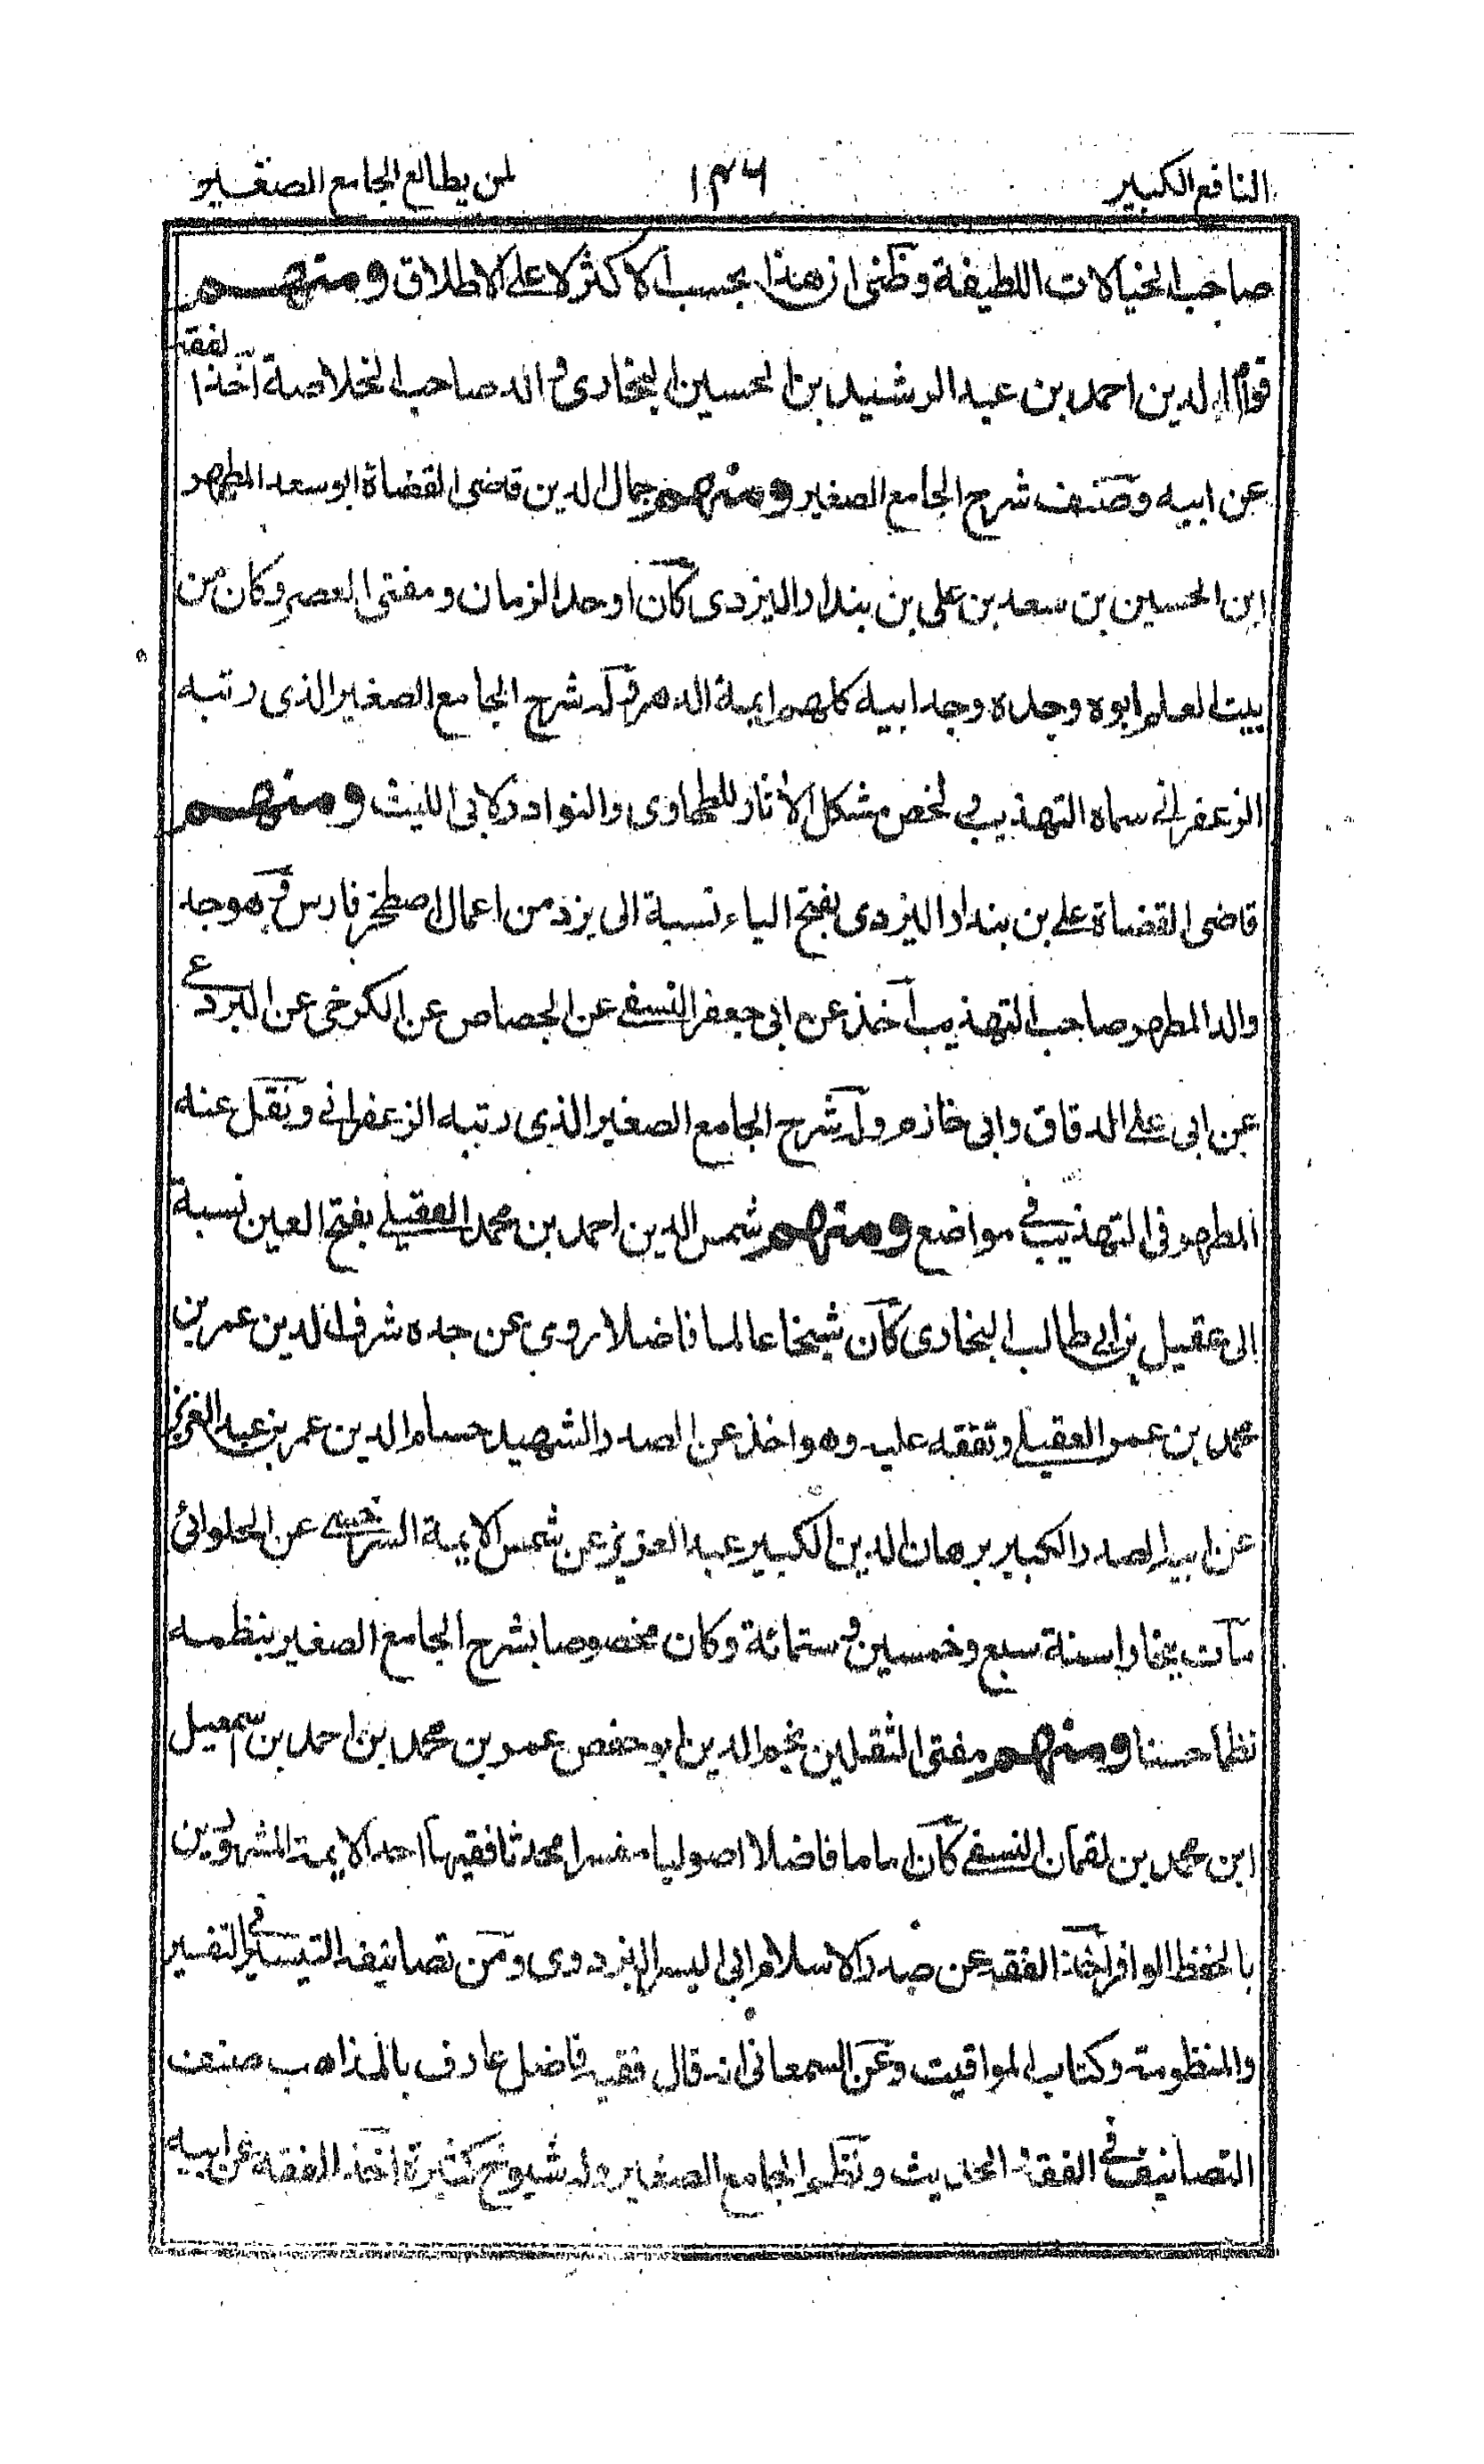 النافع الكبير ١٣٦ لمن يطالع الجامع الصغير
صاحب الخيالات اللطيفة وظنى ان هذا بحسب الاكثر لا على الاطلاق ومنهم
قوام الدين احمد بن عبد الرشيد بن الحسين البخارى والد صاحب الخلاصة اخذ الفقه
عن ابيه وصنف شرح الجامع الصغير ومنهم جمال الدين قاضى القضاة ابو سعد المطهر
ابن الحسين بن سعد بن على بن بندار اليزدى كان اوحد الزمان ومفتى العصر وكان من
بيت العلم ابوه وجده وجد ابيه كلهم ايمة الدهر وله شرح الجامع الصغير الذى رتبه
الزعفرانى سماه التهذيب لخص مشكل الاثار للطحاوى والنوادر لابى الليث ومنهم
قاضى القضاة على بن بندار اليزدى بفتح الياء نسبة الى يزد من اعمال اصطخر فارس وهو جد
والد المطهر صاحب التهذيب اخذ عن ابى جعفر النسفى عن الجصاص عن الكرخى عن البردعى
عن ابى على الدقاق وابى خازم وله شرح الجامع الصغير الذى رتبه الزعفرانى ونقل عنه
المطهر فى التهذيب فى مواضع ومنهم شمس الدين احمد بن محمد العقيلى بفتح العين نسبة
الى عقيل بن ابى طالب البخارى كان شيخا عالما فاضلا روى عن جده شرف الدين عمر بن
محمد بن عمر العقيلى وتفقه عليه وهو اخذ عن الصدر الشهيد حسام الدين عمر بن عبد العزيز
عن ابيه الصدر الكبير برهان الدين الكبير عبد العزيز عن شمس الايمة السرخسى عن الحلوائى
مات ببخارا سنة سبع وخمسين وستمائة وكان مخصوصا بشرح الجامع الصغير بنظمه
نظما حسنا ومنهم مفتى الثقلين نجم الدين ابو حفص عمر بن محمد بن احمد بن اسمعيل
ابن محمد بن لقمان النسفى كان اماما فاضلا اصوليا مفسرا محدثا فقيها احد الايمة المشهورين
بالحفظ الوافر اخذ الفقه عن صدر الاسلام ابى اليسر البزدوى ومن تصانيفه التيسير فى التفسير
والمنظومة وكتاب المواقيت وعن السمعانى انه قال فقيه فاضل عارف بالمذاهب صنف
التصانيف فى الفقه الحديث ونظم الجامع الصغير وله شيوخ كثيرة اخذ الفقه عن ابيه